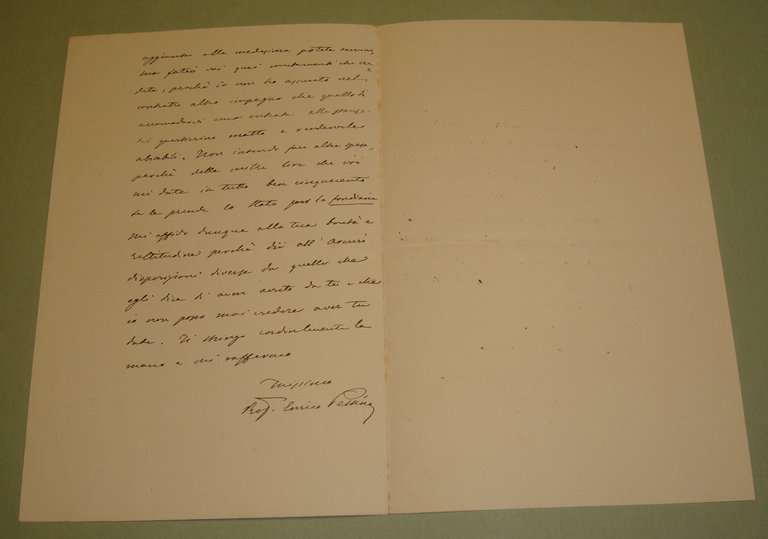 aggiunta alla medesima potete
fatevi voi quei che
dete, perchè io non ho assunto nel
contratto altro impegno che quello di
accomodarvi una entrata alle stanze
del quartierino matto e rendervele
abitabili. Non intendo fare altre spese,
perchè delle mille lire che voi
mi date in tutto ben cinquecento
se le prende lo Stato per la fondiaria
Mi affido dunque alla tua bontà e
rettitudine perchè dii all'Arcuri
disposizioni diverse da quelle che
egli dice di avere avuto da te e che
io non posso mai credere aver tu
date. Ti stringo cordialmente la
mano e mi raffermo
Tuissimo
Prof. Enrico Pessina